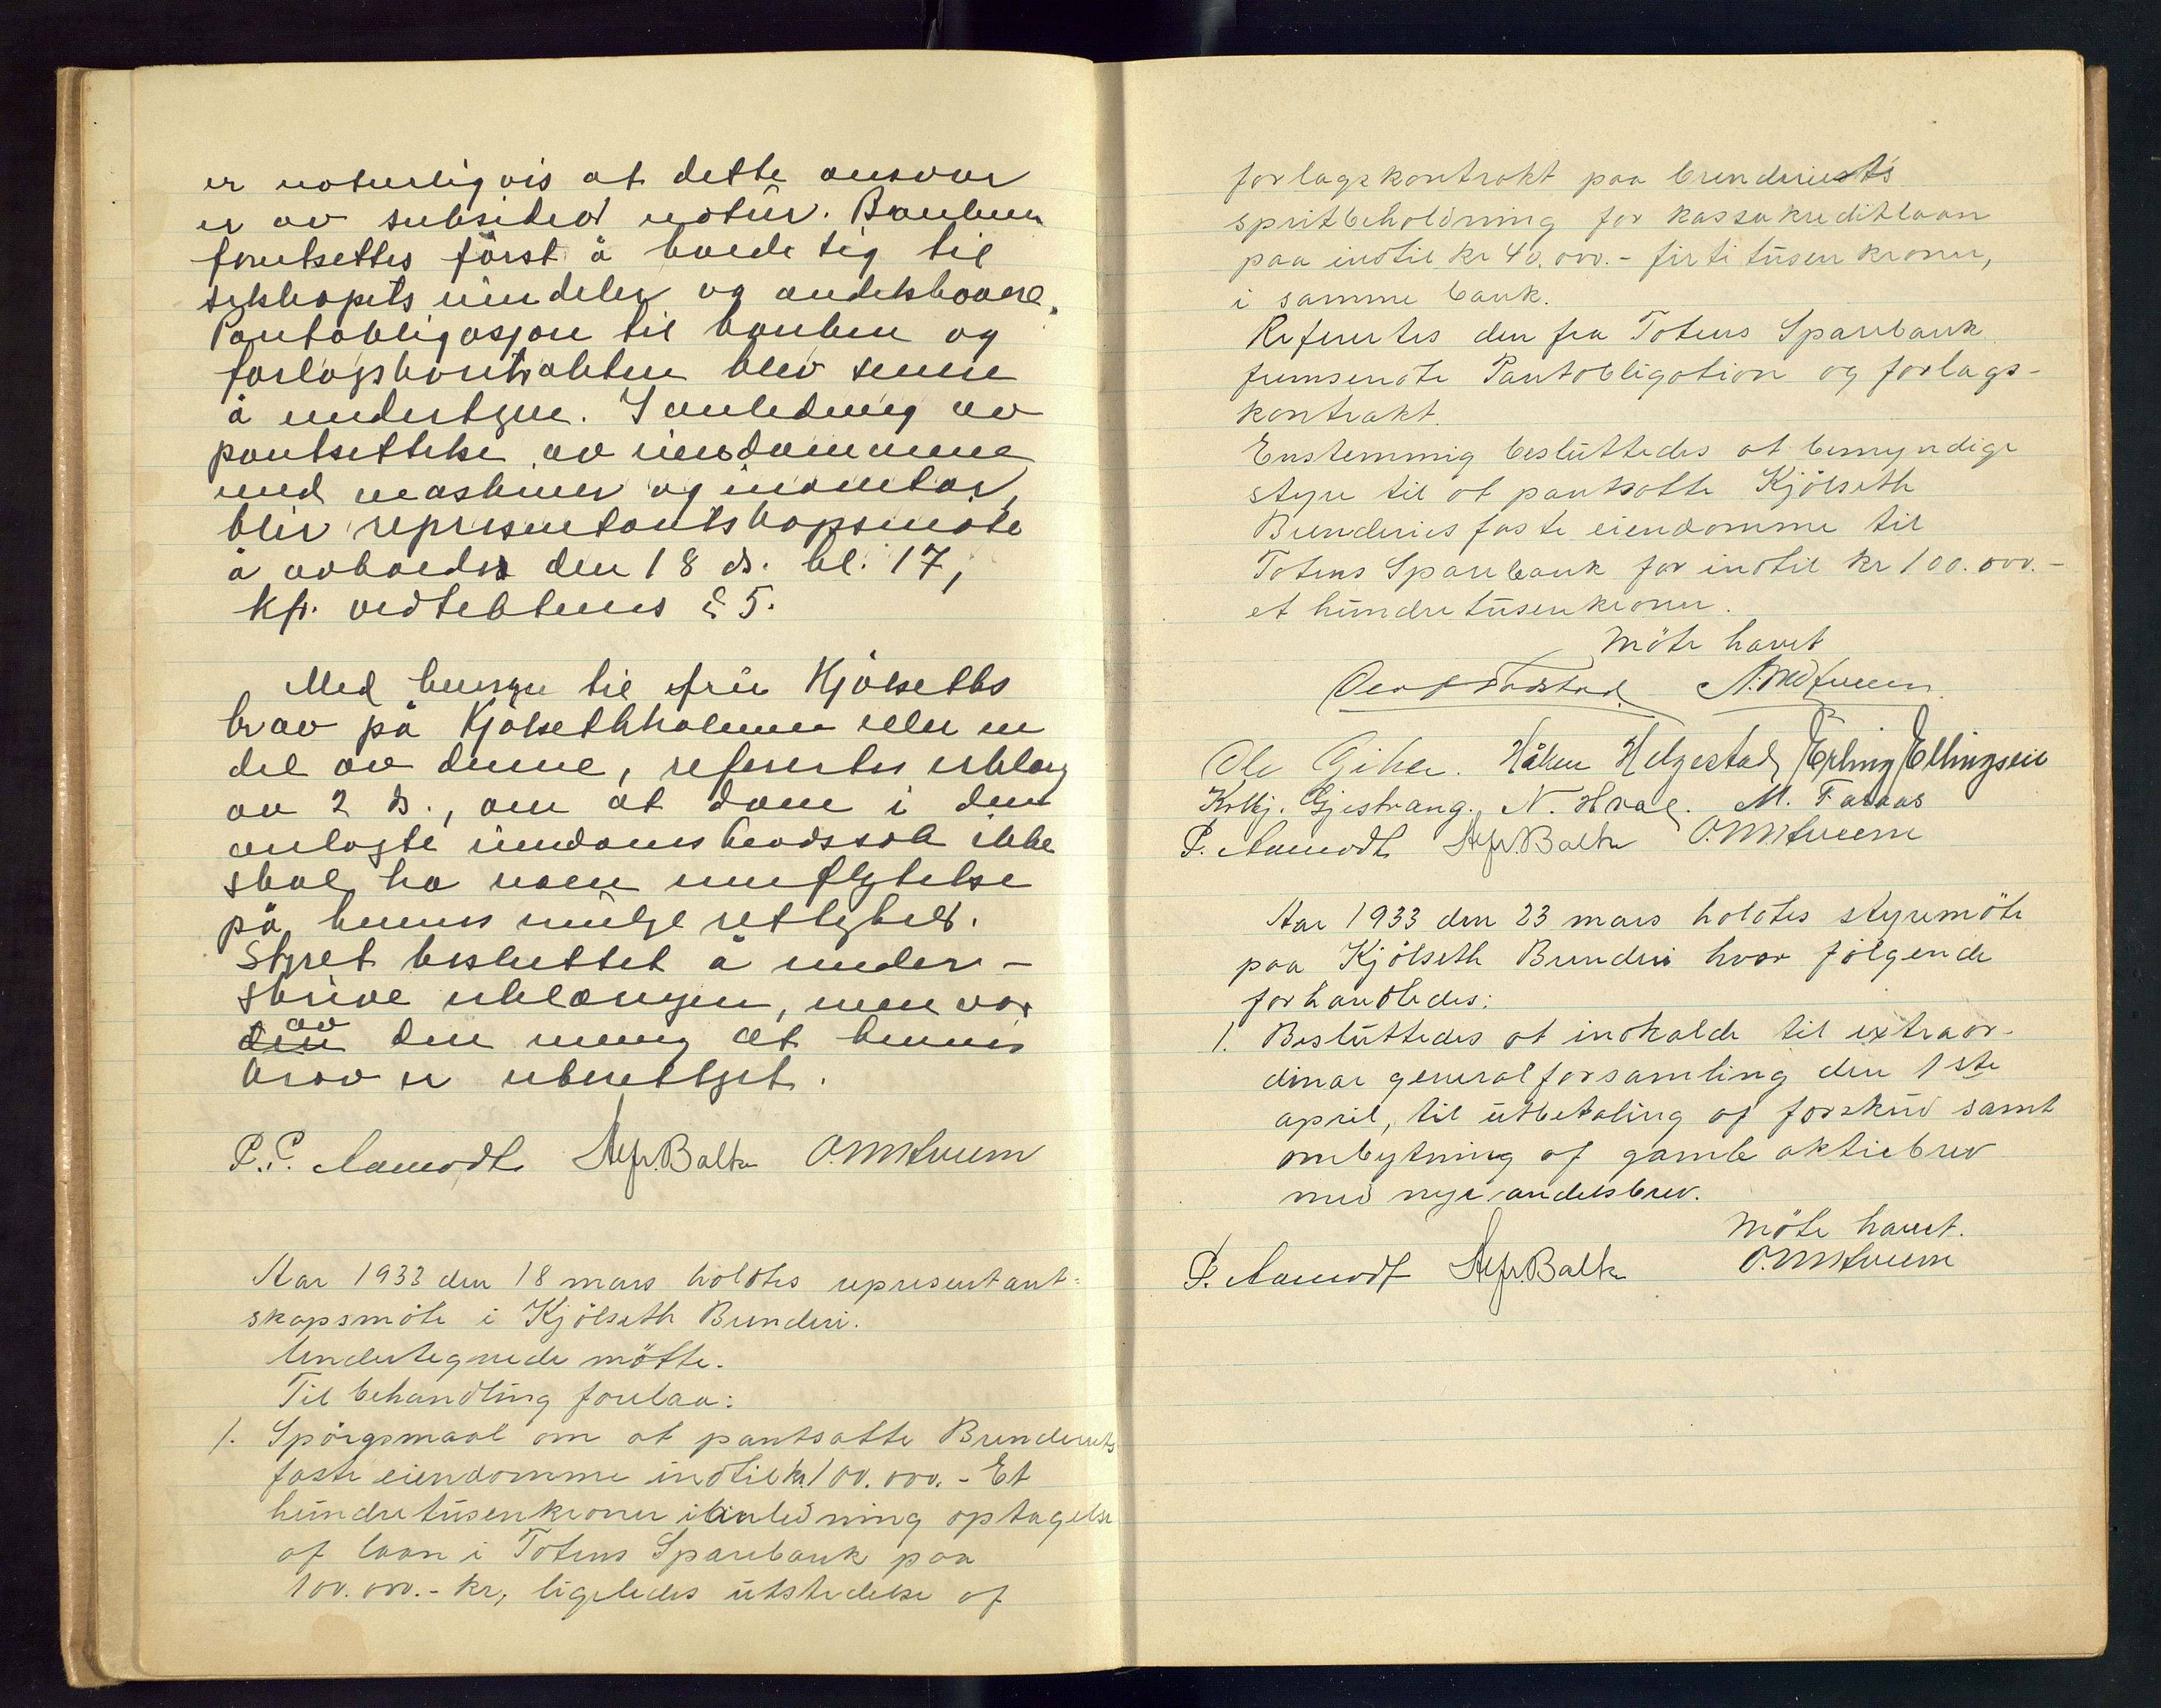 er naturligvis at dette ansvar
er av subsidiær natur. Banken
forutsettes först å holde sig til
selskapets eiendeler og andelshavere.
Pantobligasjon til banken og
forlagskontrakten blev senere
å undertegne. I anledning av
pantsettelse av eiendommene
med maskiner og inventar,
blir representantskapsmöte
å avholdes den 18 ds. kl. 17,
kfr. vedtektenes § 5.
Med hensyn til fru Kjölseths
krav på Kjölsethholmen eller en
del av denne, refereres erklæring
av 2 ds., om at dom i den
anlagte eiendomstvistsak ikke
skal ha noen innflytelse
på hennes mulige rettighet.
Styret besluttet å under-
skrive erklæringen, men var
av
den den mening at hennes
krav er uberettiget.
P. P. Aamodt Alfr. Balke O. M. Kveem
Aar 1933 den 18 mars holdtes representant-
skapsmöte i Kjölseth Brenderi.
Undertegnede mötte.
Til behandling forelaa:
1. Spörgsmaal om at pantsatte Brenderiets
faste eiendomme indtil kr 100.000.- Et
hundretusenkroner i anledning optagelse
af laan i Totens Sparebank paa
100.000.- kr, ligeledes utstedelse af
forlagskontrakt paa brenderiets
spritbeholdning for kassakreditlaan
paa indtil kr 40.000.- firti tusen kroner,
i samme bank.
Refereredes den fra Totens Sparebank
fremsendte Pantobligation og forlags-
kontrakt.
Enstemmig besluttedes at bemyndige
styre til at pantsatte Kjölseth
Brenderies faste eiendomme til
Totens Sparebank for indtil kr 100.000.-
et hundre tusen kroner.
Möte hævet
Ole Gihle. Håken Helgestad Erling Ellingsen
Kolbj. Gjestvang. N. Hval. M. Faraas
P. Aamodt Alfr. Balke O. M. Kveem
Aar 1933 den 23 mars holdtes styremöte
paa Kjölseth Brenderi hvor fölgende
forhandledes:
1. Besluttedes at indkalde til extraor-
dinær generalforsamling den 1ste
april, til utbetaling af forskud samt
ombytning af gamle aktiebrev
med nye andelsbrev.
Möte hævet.
P. Aamodt Alfr. Balke O. M. Kveem